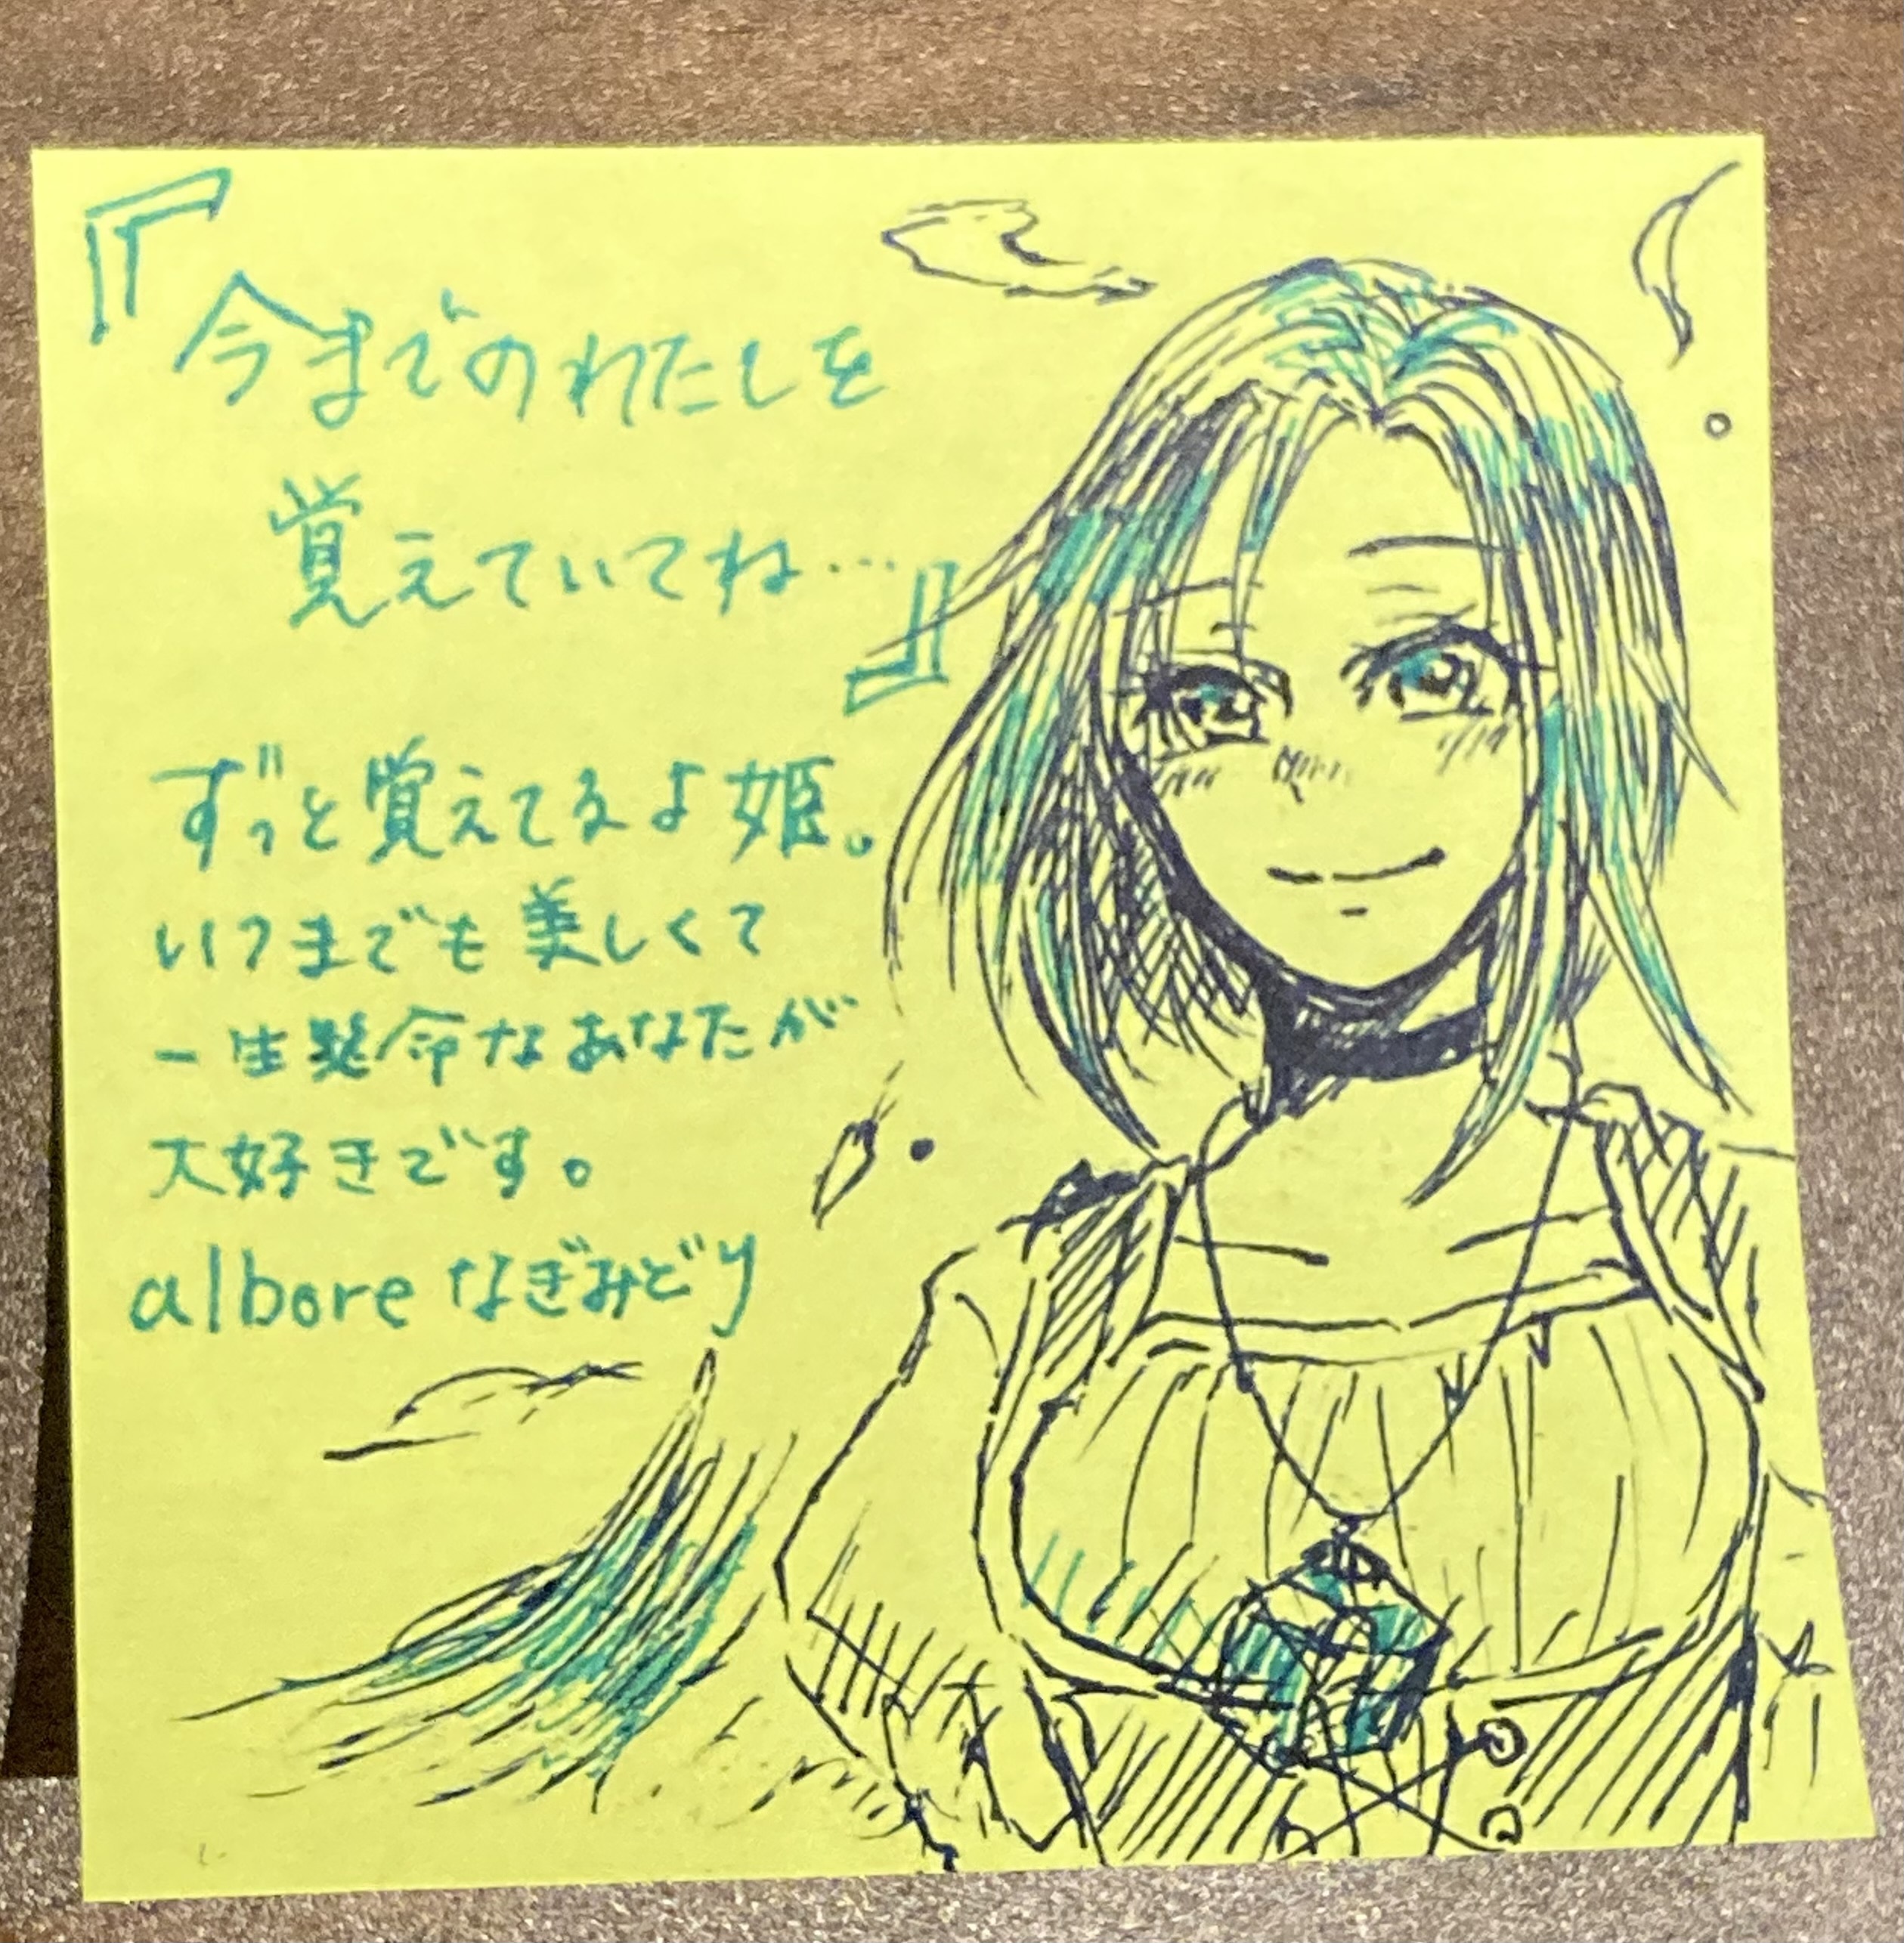 『今までのわたしを
覚えていてね…』
ずっと覚えてるよ姫。
いつまでも美しくて
一生懸命なあなたが
大好きです。
alboreなぎみどり